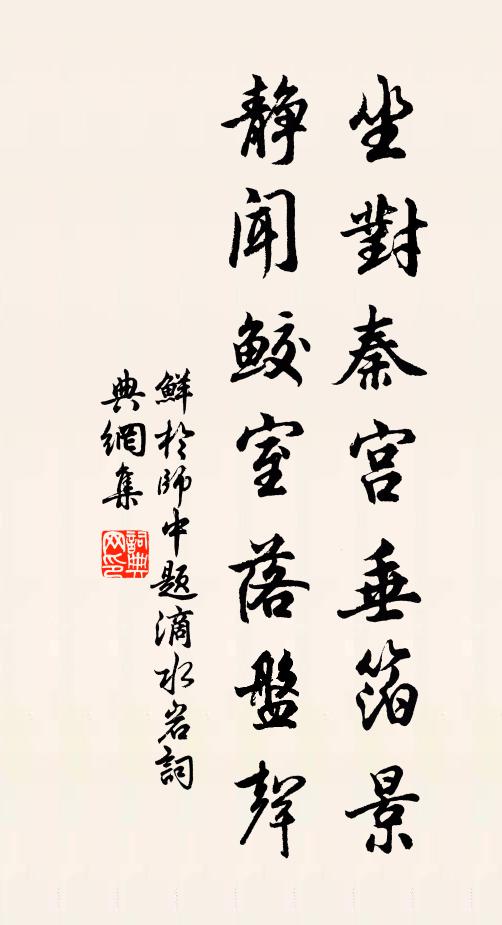 坐對秦宮垂箔景
靜聞鮫室落盤聲
鮮於師中題滴水岩詞
典網集
詞典
网印